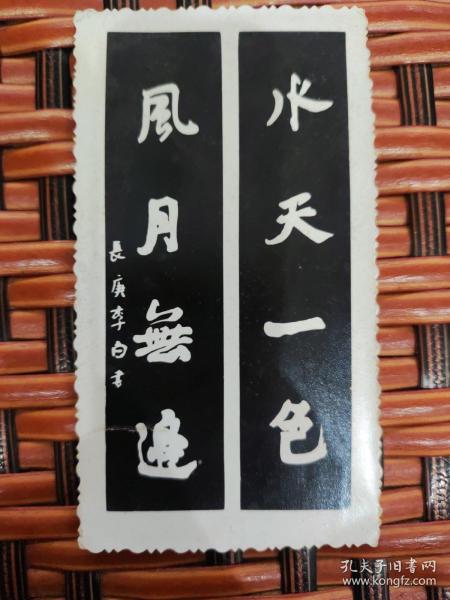 水天一色
風月無邊
長庚李白書
孔夫子旧书网
www.kongfz.com